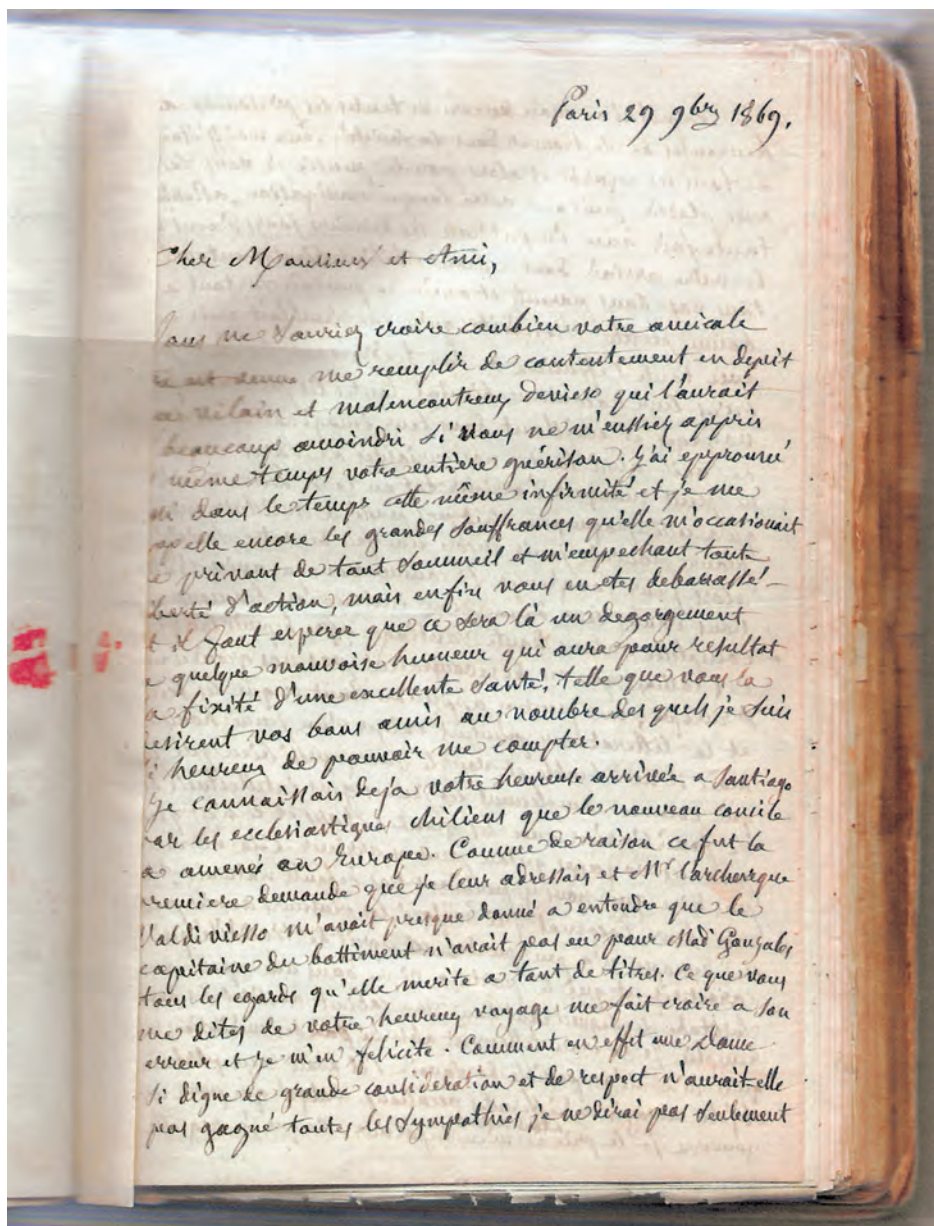 Paris 29 9bre 1869.
Cher Monsieur et Ami,
Vous ne sauriez croire combien votre amicale
est venue me remplir de contentement en depit
vilain et malencontreux devieso qui l'aurait
beaucoup amoindri si vous ne m'eussiez appris
même temps votre entière guérison. J'ai epprouvé
dans le temps cette même infirmité et je me
pelle encore les grandes souffrances qu'elle m'occasionait
privant de tout sommeil et m'empechant toute
berté d'action, mais enfin vous en etes debarrassé —
t il faut esperer que ce sera là un degorgement
e quelque mauvaise humeur qui aura pour resultat
a fixité d'une excellente santé, telle que vous la
esirent vos bons amis au nombre des quels je suis
i heureux de pouvoir me compter.
Je connaissais deja votre heureuse arrivée a Santiago
ar les ecclesiastiques chiliens que le nouveau concile
a amenés en Europe. Comme de raison ce fut la
remiere demande que je leur adressais et Mr l'archeveque
Valdiviesso m'avait presque donné a entendre que le
capitaine du battiment n'avait pas eu pour Mad Gonzales
tous les egards qu'elle merite a tant de titres. Ce que vous
me dites de votre heureux voyage me fait croire a son
erreur et je m'en felicite. Comment en effet une Dame
si digne de grande consideration et de respect n'aurait-elle
pas gagné toutes les sympathies je ne dirai pas seulement